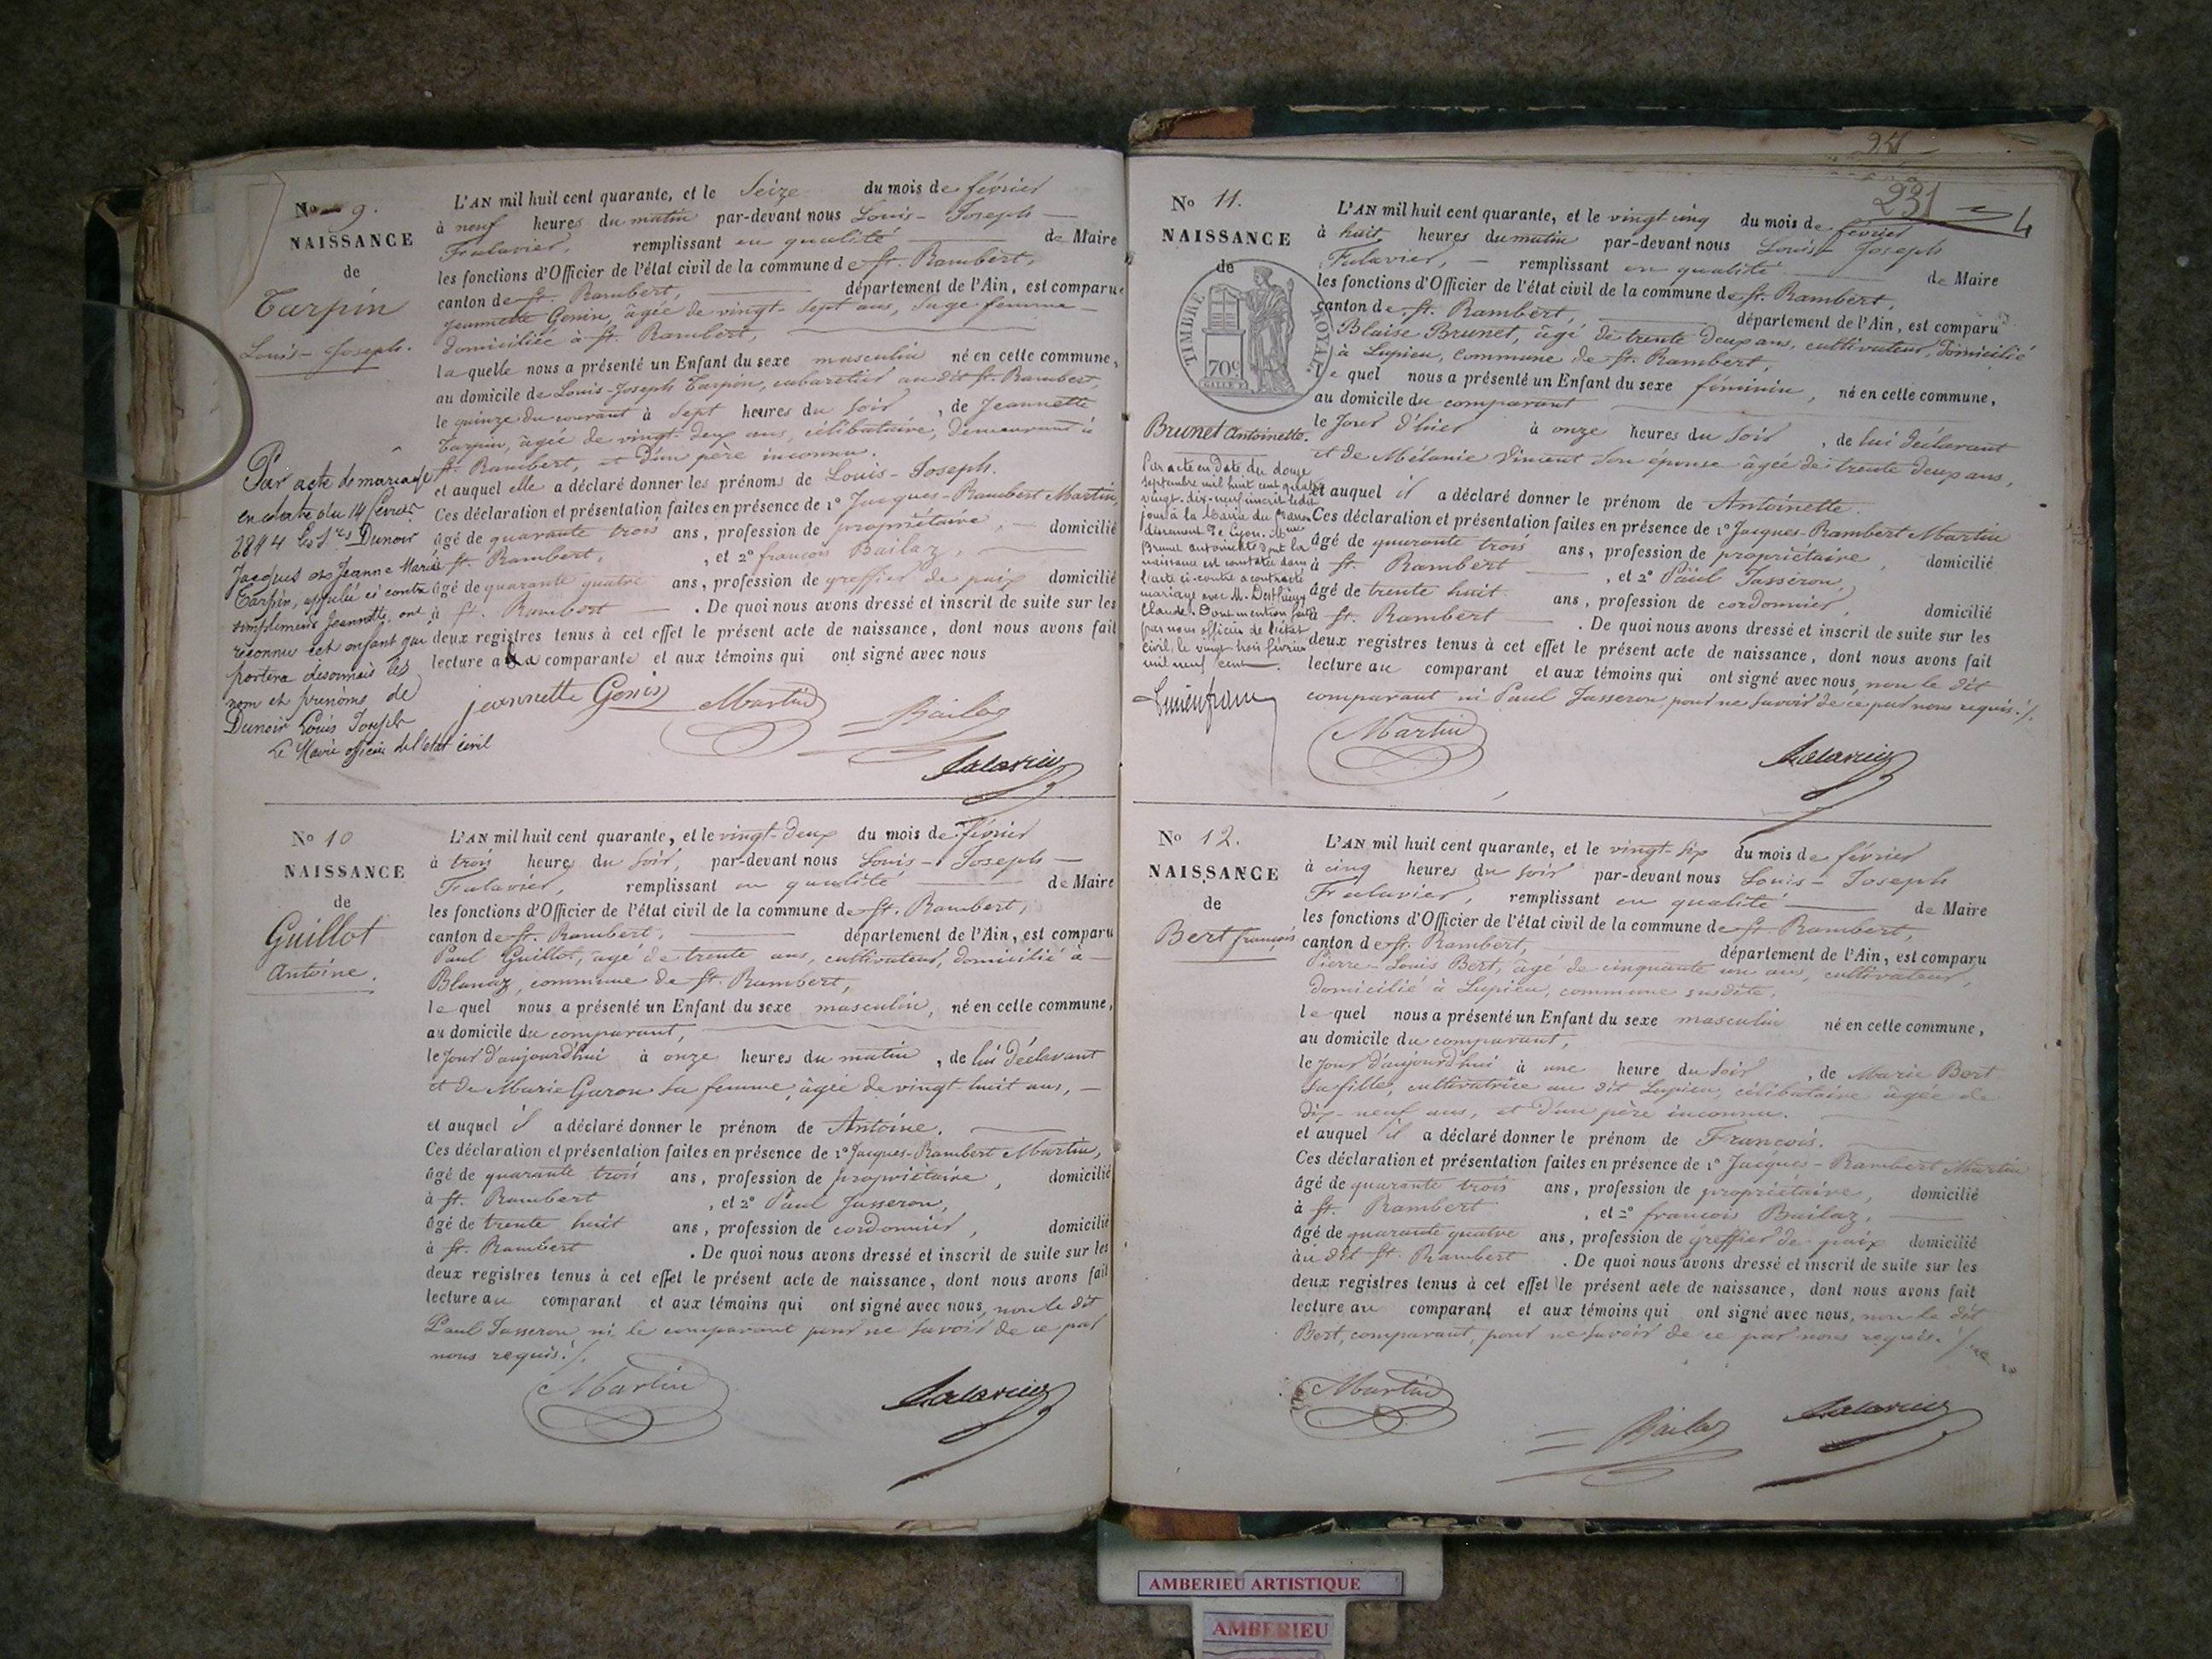 No 9.
NAISSANCE
de
Tarpin
Louis-Joseph.
Par acte de mariage
en date du 14 février
1844 les Srs Dunoir
Jacques et Jeanne Marie
Tarpin, appelée ci contre
simplement Jeannette, ont
reconnu cet enfant qui
portera désormais les
nom et prénoms de
Dunoir Louis Joseph
Le Maire officier de l'état civil
L'AN mil huit cent quarante, et le Seize du mois de février
à neuf heures du matin par-devant nous Louis-Joseph
Falavier, remplissant en qualité de Maire
les fonctions d'Officier de l'état civil de la commune de St. Rambert,
canton de St. Rambert, département de l'Ain, est comparue
Jeannette Genin, âgée de vingt-sept ans, sage femme
domiciliée à St. Rambert,
laquelle nous a présenté un Enfant du sexe masculin né en cette commune,
au domicile de Louis-Joseph Tarpin, cabaretier au dit St. Rambert,
le quinze du courant à sept heures du soir, de Jeannette
Tarpin, âgée de vingt-deux ans, célibataire, demeurant à
St. Rambert, et d'un père inconnu.
et auquel elle a déclaré donner les prénoms de Louis-Joseph.
Ces déclaration et présentation faites en présence de 1° Jacques-Rambert Martin,
âgé de quarante trois ans, profession de propriétaire, domicilié
à St. Rambert, et 2° françois Bailaz,
âgé de quarante quatre ans, profession de greffier de paix domicilié
à St. Rambert. De quoi nous avons dressé et inscrit de suite sur les
deux registres tenus à cet effet le présent acte de naissance, dont nous avons fait
lecture a la comparante et aux témoins qui ont signé avec nous
jeannette Genin Martin Bailaz
Falavier
No 10
NAISSANCE
de
Guillot
Antoine.
L'AN mil huit cent quarante, et le vingt-deux du mois de février
à trois heures du soir, par-devant nous Louis-Joseph
Falavier, remplissant en qualité de Maire
les fonctions d'Officier de l'état civil de la commune de St. Rambert,
canton de St. Rambert, département de l'Ain, est comparu
Paul Guillot, âgé de trente ans, cultivateur, domicilié à
Blanaz, commune de St. Rambert,
lequel nous a présenté un Enfant du sexe masculin, né en cette commune,
au domicile du comparant,
le Jour d'aujourd'hui à onze heures du matin, de lui déclarant
et de Marie Garon sa femme, âgée de vingt-huit ans,
et auquel il a déclaré donner le prénom de Antoine.
Ces déclaration et présentation faites en présence de 1° Jacques-Rambert Martin,
âgé de quarante trois ans, profession de propriétaire, domicilié
à St. Rambert, et 2° Paul Jasseron,
âgé de trente huit ans, profession de cordonnier, domicilié
à St. Rambert. De quoi nous avons dressé et inscrit de suite sur les
deux registres tenus à cet effet le présent acte de naissance, dont nous avons fait
lecture au comparant et aux témoins qui ont signé avec nous, non le dit
Paul Jasseron, ni le comparant pour ne savoir de ce par
nous requis./.
Martin Falavier
231
4
No 11.
NAISSANCE
de
TIMBRE ROYAL
70c
Brunet Antoinette.
Par acte en date du douze
septembre mil huit cent quatre
vingt-dix-neuf inscrit ledit
jour à la Mairie du
de Lyon, Mme
Brunet antoinette dont la
naissance est constatée dans
l'acte ci-contre a contracté
mariage avec M.
Claude. Dont mention faite
par nous officier de l'état
civil, le vingt trois février
mil neuf cent.
L'AN mil huit cent quarante, et le vingt cinq du mois de février
à huit heures du matin par-devant nous Louis-Joseph
Falavier, remplissant en qualité de Maire
les fonctions d'Officier de l'état civil de la commune de St. Rambert,
canton de St. Rambert, département de l'Ain, est comparu
Blaise Brunet, âgé de trente deux ans, cultivateur, domicilié
à Lupieu, commune de St. Rambert,
lequel nous a présenté un Enfant du sexe féminin, né en cette commune,
au domicile du comparant
le Jour d'hier à onze heures du soir, de lui déclarant
et de Mélanie Vincent son épouse âgée de trente deux ans,
et auquel il a déclaré donner le prénom de Antoinette.
Ces déclaration et présentation faites en présence de 1° Jacques-Rambert Martin
âgé de quarante trois ans, profession de propriétaire, domicilié
à St. Rambert, et 2° Paul Jasseron,
âgé de trente huit ans, profession de cordonnier, domicilié
à St. Rambert. De quoi nous avons dressé et inscrit de suite sur les
deux registres tenus à cet effet le présent acte de naissance, dont nous avons fait
lecture au comparant et aux témoins qui ont signé avec nous, non le dit
comparant ni Paul Jasseron pour ne savoir de ce par nous requis./.
Martin Falavier
No 12.
NAISSANCE
de
Bert françois
L'AN mil huit cent quarante, et le vingt-six du mois de février
à cinq heures du soir par-devant nous Louis-Joseph
Falavier, remplissant en qualité de Maire
les fonctions d'Officier de l'état civil de la commune de St. Rambert,
canton de St. Rambert, département de l'Ain, est comparu
Pierre-Louis Bert, âgé de cinquante un ans, cultivateur,
domicilié à Lupieu, commune susdite,
lequel nous a présenté un Enfant du sexe masculin né en cette commune,
au domicile du comparant,
le Jour d'aujourd'hui à une heure du soir, de Marie Bert
sa fille, cultivatrice au dit Lupieu, célibataire âgée de
dix-neuf ans, et d'un père inconnu.
et auquel il a déclaré donner le prénom de François.
Ces déclaration et présentation faites en présence de 1° Jacques-Rambert Martin
âgé de quarante trois ans, profession de propriétaire, domicilié
à St. Rambert, et 2° françois Bailaz,
âgé de quarante quatre ans, profession de greffier de paix domicilié
au dit St. Rambert. De quoi nous avons dressé et inscrit de suite sur les
deux registres tenus à cet effet le présent acte de naissance, dont nous avons fait
lecture au comparant et aux témoins qui ont signé avec nous, non le dit
Bert, comparant, pour ne savoir de ce par nous requis./.
Martin Bailaz Falavier
AMBERIEU ARTISTIQUE
AMBERIEU